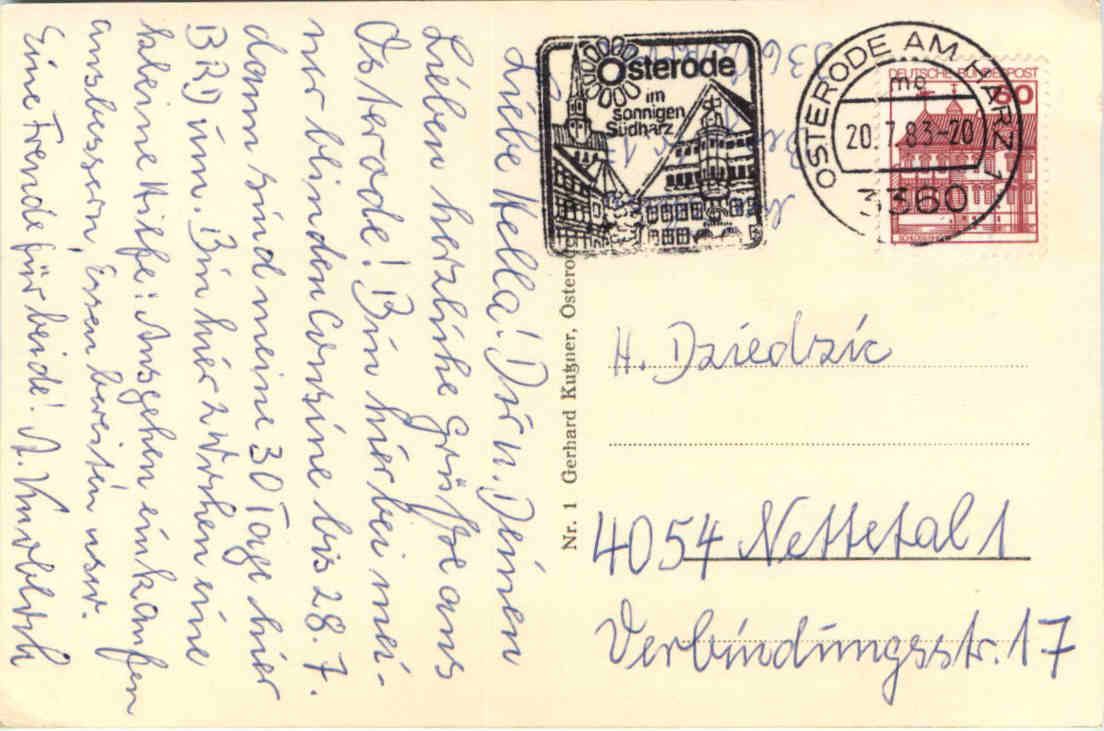 Liebe Hella! Du u. Deinen
Lieben herzliche Grüße aus
Osterode! Bin hier bei mei-
ner blinden Cousine bis 28.7.
dann sind meine 30 Tage hier
BRD um. Bin hier zwischen eine
kleine Hilfe! Ausgehen einkaufen
ausbessern, Essen bereiten usw.
Eine Freude für beide! A.
Nr. 1 Gerhard Kugner, Osterode
Osterode
im
sonnigen
Südharz
OSTERODE AM HARZ 1
mc
20.7.83-20
3360
DEUTSCHE BUNDESPOST
60
H. Dziedzic
4054 Nettetal 1
Verbindungsstr. 17